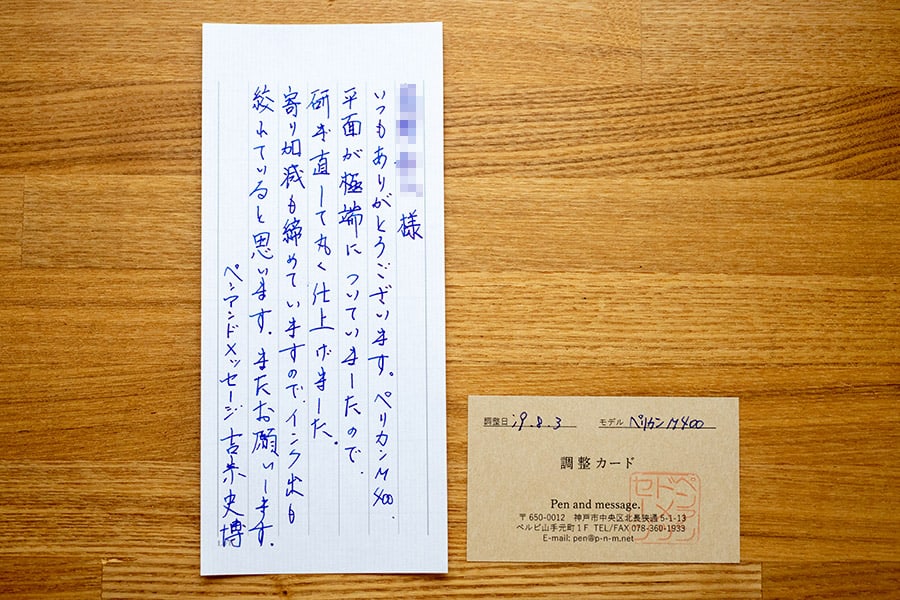 様
いつもありがとうございます。ペリカンM400、
平面が極端についていましたので、
研ぎ直して丸く仕上げました。
寄り加減も締めていますので、インク出も
絞れていると思います。またお願いします。
ペンアンドメッセージ 吉宗史博
調整日 19.8.3 モデル ペリカンM400
調整カード
Pen and message.
〒650-0012 神戸市中央区北長狭通5-1-13
ベルビ山手元町1F TEL/FAX 078-360-1933
E-mail: pen@p-n-m.net
ペンアンドメッセージ